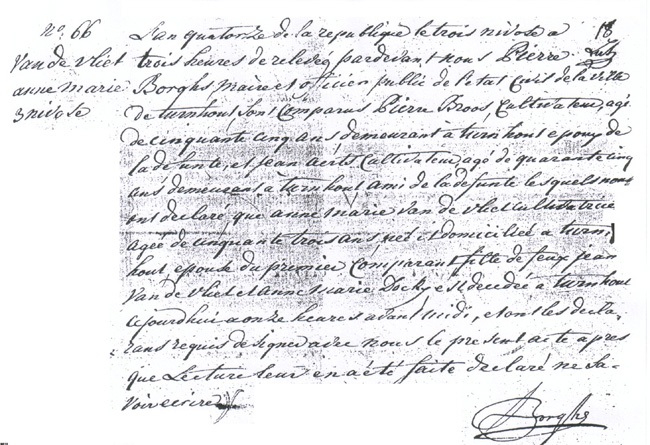 no. 66
Van de Vliet
anne Marie
3 nivose
L'an quatorze de la republique le trois nivose a
trois heures de relevée pardevant nous Pierre
Borghs Maire et officier public de l'etat Civil de la ville
de turnhout, sont Comparus Pierre Broos, Cultivateur, agé
de cinquante cinq ans demeurant à turnhout epoux de
la defunte, et jean aerts Cultivateur, agé de quarante cinq
ans demeurant a turnhout ami de la defunte les quels nous
ont declaré, que anne Marie Van de Vliet Cultivatrice
agée de cinquante trois ans née et domiciliée a turn
hout, epouse du premier Comparant fille de feux jean
Van de Vliet et anne Marie est decedée à turnhout
cejourdhui a onze heures avant midi, et ont les decla-
rans requis de signer avec nous le present acte apres
que Lecture leur en a été faite declaré ne Sa-
Voir ecrire
Borghs
18